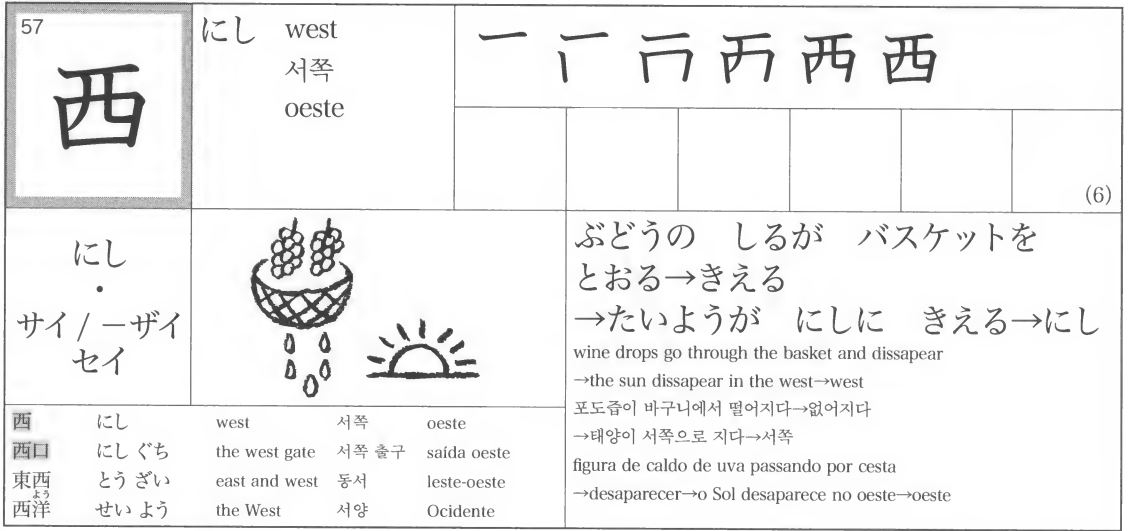 57
西
にし west
서쪽
oeste
一 丆 襾 襾 西 西
(6)
にし
・
サイ / ーザイ
セイ
ぶどうの しるが バスケットを
とおる→きえる
→たいようが にしに きえる→にし
wine drops go through the basket and dissapear
→the sun dissapear in the west→west
포도즙이 바구니에서 떨어지다→없어지다
→태양이 서쪽으로 지다→서쪽
figura de caldo de uva passando por cesta
→desaparecer→o Sol desaparece no oeste→oeste
西 にし west 서쪽 oeste
西口 にし ぐち the west gate 서쪽 출구 saída oeste
東西 とう ざい east and west 동서 leste-oeste
よう
西洋 せい よう the West 서양 Ocidente